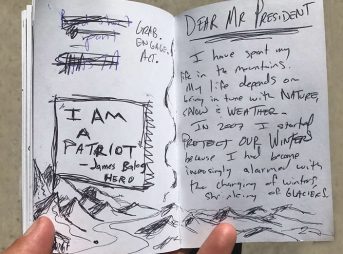 GRAB.
ENGAGE.
ACT.
I AM
A
PATRIOT
- James Balog
HERO
DEAR MR PRESIDENT
I have spent my
life in the mountains.
My life depends on
being in tune with NATURE,
SNOW & WEATHER.
IN 2007 I started
PROTECT OUR WINTERS
because I had become
increasingly alarmed with
the changing of winters,
shrinking of GLACIERS.